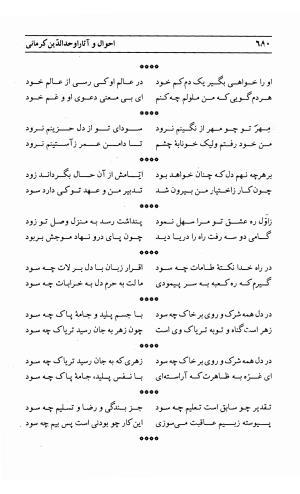 ۶۸۰ احوال و آثار اوحدالدّین کرمانی
****
او را خواهی بگیر یک دم کم خود در عالم او کی رسی از عالم خود
هردم گویی که من ملولم چه کنم ای بی معنی دعوی او و غم خود
****
مِهرِ تو چو مهر از نگینم نرود سودای تو از دل حزینم نرود
من خود رفتم ولیک خونابهٔ چشم تا دامن عمر ز آستینم نرود
****
برهرچه نهم دل که چنان خواهد بود ایّامش از آن حال بگرداند زود
چون کار زاختیار من بیرون شد تدبیر من و عهد تو کی دارد سود
****
زاوّل ره عشق تو مرا سهل نمود پنداشت رسد به منزل وصل تو زود
گامی دو سه رفت راه را دریا دید چون پای درو نهاد موجش بربود
****
در راه خدا نکتهٔ طامات چه سود اقرار زبان با دل بر لات چه سود
گیرم که ره کعبه به سر پیمودی مالت به حرم دل به خرابات چه سود
****
در دل همه شرک و روی بر خاک چه سود با جسم پلید و جامهٔ پاک چه سود
زهر است گناه و توبه تریاک وی است چون زهر به جان رسید تریاک چه سود
****
در دل همه شرک و روی بر خاک چه سود زهری که به جان رسید تریاک چه سود
ای غرّه به ظاهرت که آراسته‌ای با نفس پلید، جامهٔ پاک چه سود
****
تقدیر چو سابق است تعلیم چه سود جز بندگی و رضا و تسلیم چه سود
پیوسته زبیم عاقبت می‌سوزی این کار چو بودنی است پس بیم چه سود
****